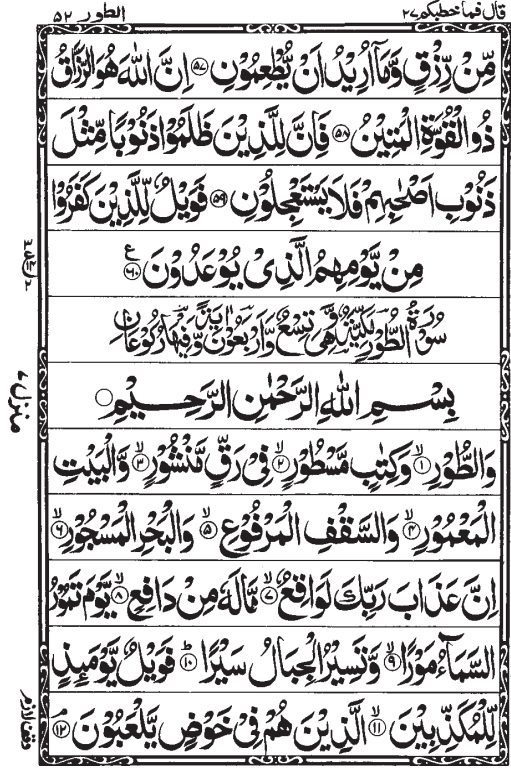 قال فما خطبكم ٢٧
الطور ٥٢
مِّنۡ رِّزۡقٍ وَّمَاۤ اُرِيۡدُ اَنۡ يُّطۡعِمُوۡنِ ﴿٥٧﴾ اِنَّ اللّٰهَ هُوَ الرَّزَّاقُ
ذُو الۡقُوَّةِ الۡمَتِيۡنُ ﴿٥٨﴾ فَاِنَّ لِلَّذِيۡنَ ظَلَمُوۡا ذَنُوۡبًا مِّثۡلَ
ذَنُوۡبِ اَصۡحٰبِهِمۡ فَلَا يَسۡتَعۡجِلُوۡنِ ﴿٥٩﴾ فَوَيۡلٌ لِّلَّذِيۡنَ كَفَرُوۡا
مِنۡ يَّوۡمِهِمُ الَّذِىۡ يُوۡعَدُوۡنَ ﴿٦٠﴾ ع
سُوۡرَةُ الطُّوۡرِ مَكِّيَّةٌ وَّهِىَ تِسۡعٌ وَّاَرۡبَعُوۡنَ اٰيَةً وَّفِيۡهَا رُكُوۡعَانِ
بِسۡمِ اللّٰهِ الرَّحۡمٰنِ الرَّحِيۡمِ
وَالطُّوۡرِ ﴿١﴾ وَكِتٰبٍ مَّسۡطُوۡرٍ ﴿٢﴾ فِىۡ رَقٍّ مَّنۡشُوۡرٍ ﴿٣﴾ وَّالۡبَيۡتِ
الۡمَعۡمُوۡرِ ﴿٤﴾ وَالسَّقۡفِ الۡمَرۡفُوۡعِ ﴿٥﴾ وَالۡبَحۡرِ الۡمَسۡجُوۡرِ ﴿٦﴾
اِنَّ عَذَابَ رَبِّكَ لَوَاقِعٌ ﴿٧﴾ مَّا لَهٗ مِنۡ دَافِعٍ ﴿٨﴾ يَّوۡمَ تَمُوۡرُ
السَّمَآءُ مَوۡرًا ﴿٩﴾ وَّتَسِيۡرُ الۡجِبَالُ سَيۡرًا ﴿١٠﴾ فَوَيۡلٌ يَّوۡمَئِذٍ
لِّلۡمُكَذِّبِيۡنَ ﴿١١﴾ الَّذِيۡنَ هُمۡ فِىۡ خَوۡضٍ يَّلۡعَبُوۡنَ ﴿١٢﴾
منزل ٧
وقف لازم